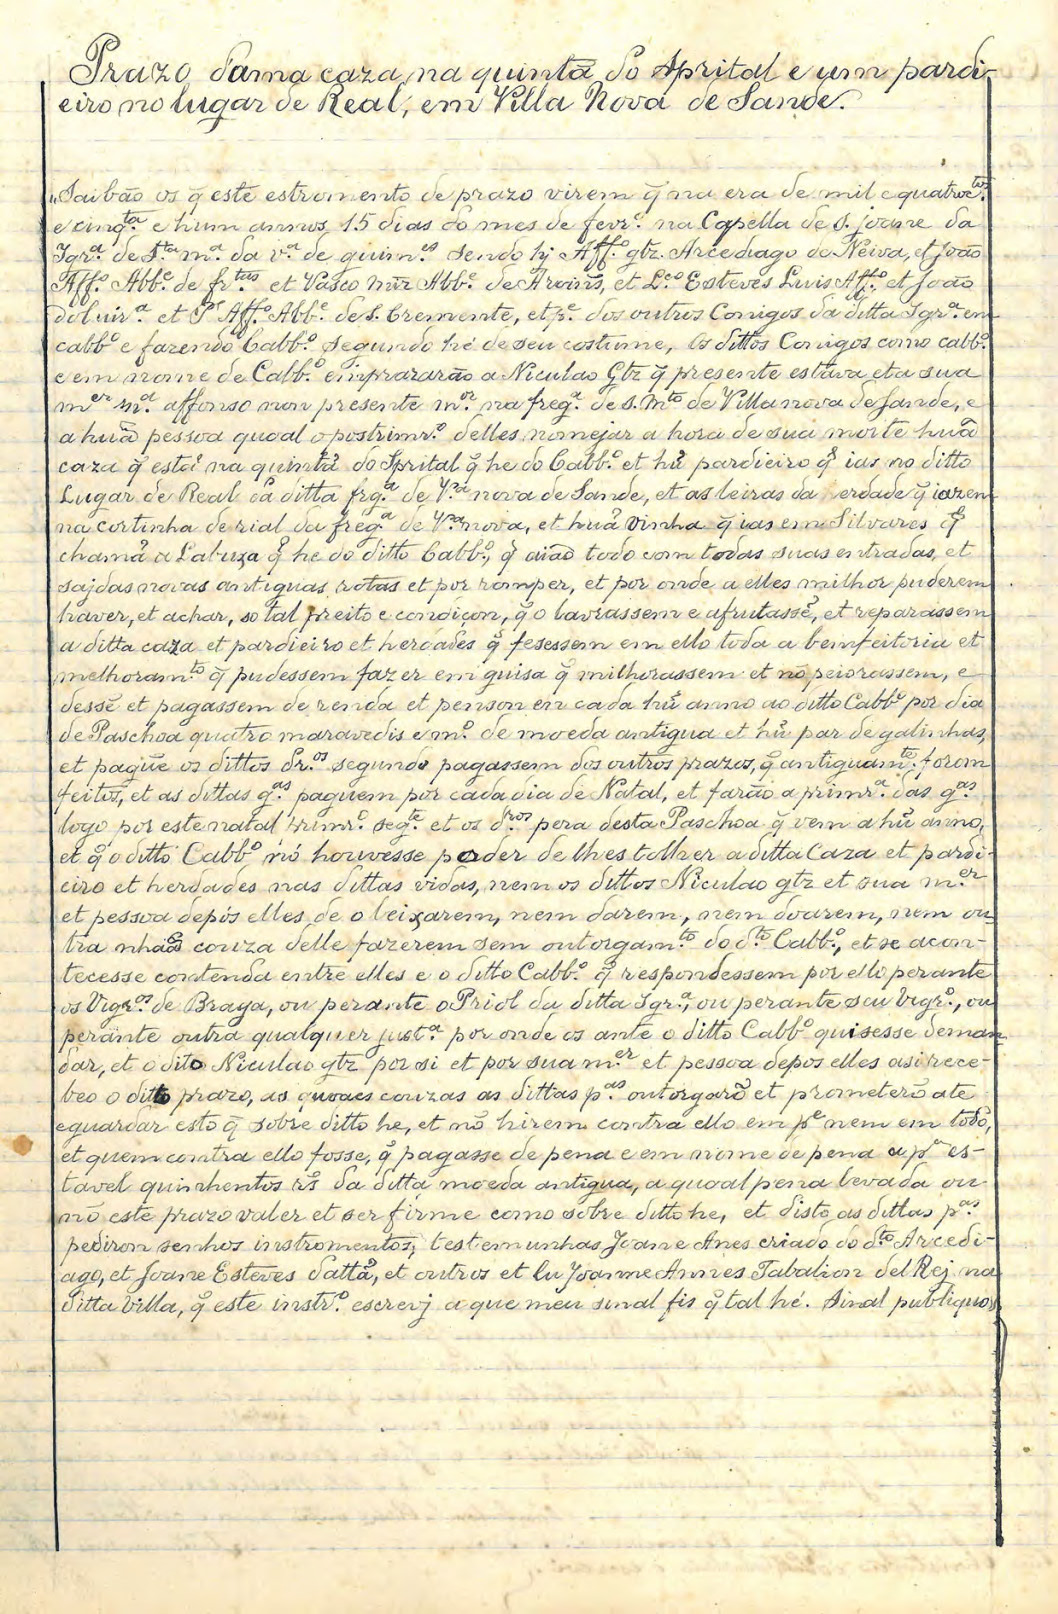 Prazo dama caza, na quintã do Aprital e um pardi-
eiro no lugar de Real, em Villa Nova de Sande.
"Saibão os q̃ este estromento de prazo virem q̃ na era de mil e quatroc.tos
e cinq.ta e hum annos 15 dias do mes de fevr.o na Capella de S. Joane da
Igr.a de S.ta m.a da v.a de guim.es sendo hj Aff.o glz. Arcediago de Neiva, et João
Aff.o Abb.e de fr.tas et Vasco mr̃z Abb.e de , et L.co Esteves Luis Aff.o, et João
doluir.a et P.o Aff.o Abb.e de S. Cremente, et p.e dos outros Conigos da ditta Igr.a en
cabb.o e fazendo Cabb.o segundo hé de seu costume, Os dittos Conigos como cabb.o
e em nome de Cabb.o emprazarão a Niculao Glz q̃ presente estava et a sua
m.er m.a affonso non presente m.or na freg.a de S. M.to de Villa nova de Sande, e
a huã pessoa quoal o postrimr.o delles nomejar a hora de sua morte huã
caza q̃ está na quintã do Sprital q̃ he do Cabb.o et hũ pardieiro q̃ ias no ditto
Lugar de Real dã ditta frg.a de V.a nova de Sande, et as leiras da erdade q̃ iazem
na cortinha de rial da freg.a de V.a nova, et huã vinha q̃ ias em Silvares q̃
chamã a Labuza q̃ he do ditto Cabb.o, q̃ aião todo com todas suas entradas, et
sajdas novas antiguas rotas et por romper, et por onde a elles milhor puderem
haver, et achar, so tal preito e condiçon, q̃ o lavrassem e afrutassẽ, et reparassem
a ditta caza et pardieiro et herdades q̃ fesessem em ello toda a bemfeitoria et
melhoram.to q̃ pudessem fazer em guisa q̃ milhorassem et nõ peiorassem, e
dessẽ et pagassem de renda et penson en cada hũ anno ao ditto Cabb.o por dia
de Paschoa quatro maravedis e m.o de moeda antigua et hũ par de galinhas,
et paguẽ os dittos dr.os segundo pagassem dos outros prazos, q̃ antiguam.te forom
feitos, et as dittas g.as paguem por cada dia de Natal, et farão a primr.a das g.as
logo por este natal primr.o seg.te et os d.ros pera desta Paschoa q̃ vem a hũ anno,
et q̃ o ditto Cabb.o nó houvesse poder de lhes tolher a ditta Caza et pardi-
eiro et herdades nas dittas vidas, nem os dittos Niculao glz et sua m.er
et pessoa depós elles de o leixarem, nem darem, nem doarem, nem ou
tra nhãa couza delle fazerem sem outorgam.to do d.to Cabb.o, et se acon-
tecesse contenda entre elles e o ditto Cabb.o q̃ respondessem por ello perante
os Vigr.os de Braga, ou perante o Priol da ditta Igr.a, ou perante seu Vigr.o, ou
perante outra qualquer just.a por onde os ante o ditto Cabb.o quisesse deman
dar, et o dito Niculao glz por si et por sua m.er et pessoa depos elles asi rece-
beo o ditto prazo, as quoaes couzas as dittas p.as outorgarõ et prometerõ ate
e guardar esto q̃ sobre ditto he, et nõ hirem contra ello em p.e nem em todo,
et quem contra ello fosse, q̃ pagasse de pena e em nome de pena a p.te es-
tavel quinhentos rs̃ da ditta moeda antigua, a quoal pena levada ou
nõ este prazo valer et ser firme como sobre ditto he, et disto as dittas p.as
pediron senhos instromentos, testemunhas Joane Anes criado do d.to Arcedi-
ago, et Joane Esteves dattã, et outros et Eu Joanne Annes Tabalion del Rej na
ditta villa, q̃ este instr.o escrevj a que meu sinal fis q̃ tal hé. Sinal publiquo,,